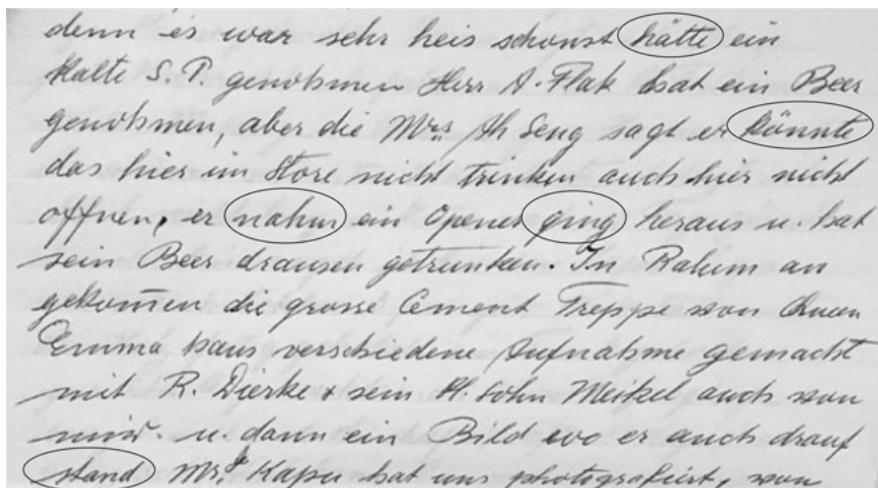 denn es war sehr heis schonst hätte ein
Kalte S. P. genohmen Herr A. Flak hat ein Beer
genohmen, aber die Mrs Ah Seng sagt er könnte
das hier im Store nicht trinken auch hier nicht
offnen, er nahm ein Opener ging heraus u. hat
sein Beer drausen getrunken. In Ralum an
gekom̄en die grosse Cement Treppe von Queen
Emma haus verschiedene Aufnahme gemacht
mit R. Dierke & sein Kl. Sohn Meikel auch von
mir. u. dann ein Bild wo er auch drauf
stand Mrs. Kapu hat uns photografiert, von